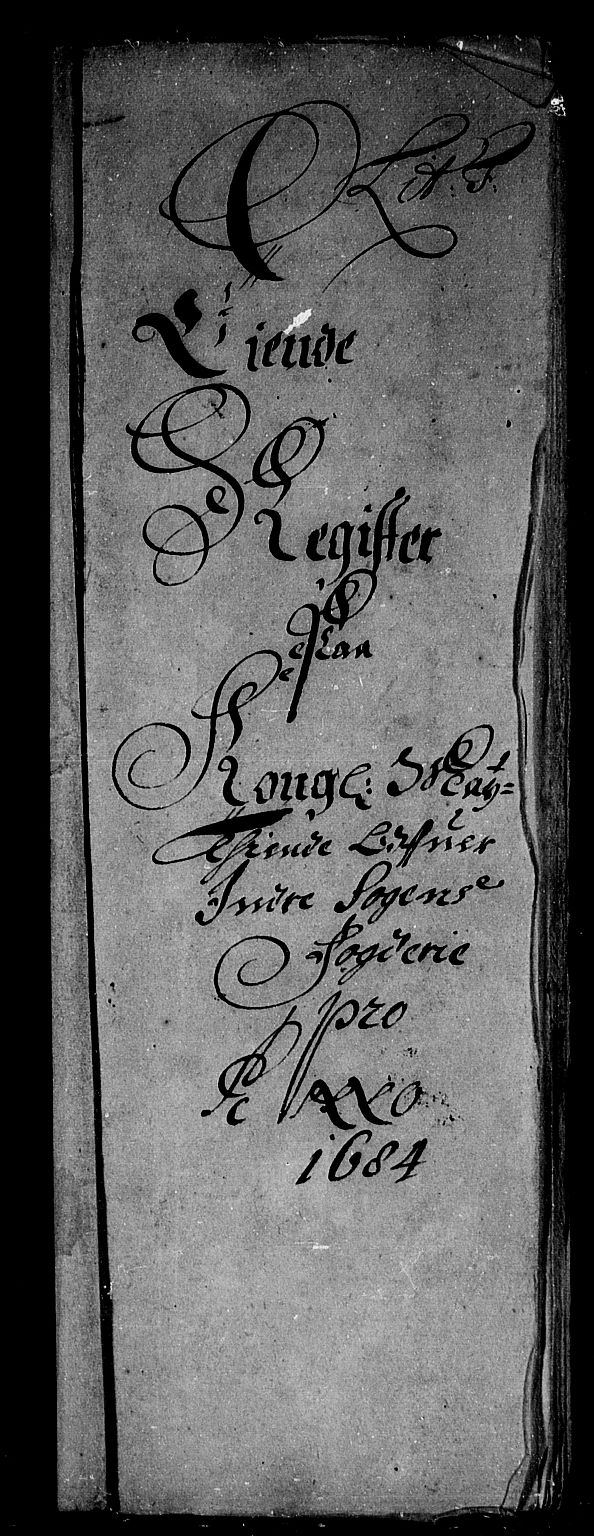 Lit: F:
Tiende
Register
Paa
Kongl: May=
Tiende Udj
Indre Sogens
Fogderie
pro
Anno
1684